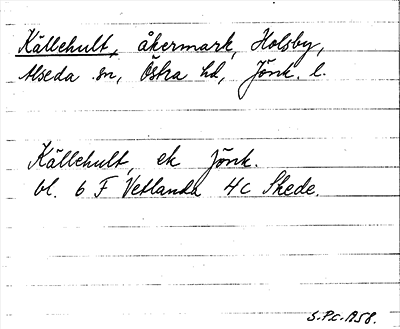 Källehult, åkermark, Holsby,
Alseda sn, Östra hd, Jönk. l.
Källehult, ek Jönk.
bl. 6 F Vetlanda 4c Skede.
S.P.C.-A.58.